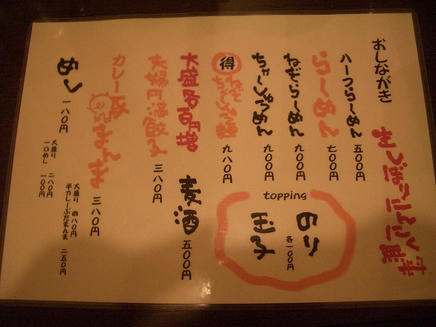 おしながき
ハーフらーめん 五〇〇円
らーめん 七〇〇円
ねぎらーめん 九〇〇円
ちゃーしゅうめん 九〇〇円
得 ねぎちゃーしゅう麺 九八〇円
大盛 百円増
夫婦円満餃子 三八〇円
麦酒 五〇〇円
カレー 飯 まんま 三八〇円
大盛り 四八〇円
半カレーぶたまんま 二五〇円
めし 一八〇円
大盛り 二八〇円
一〇めし 一〇〇円
topping
のり
各一〇〇円
玉子